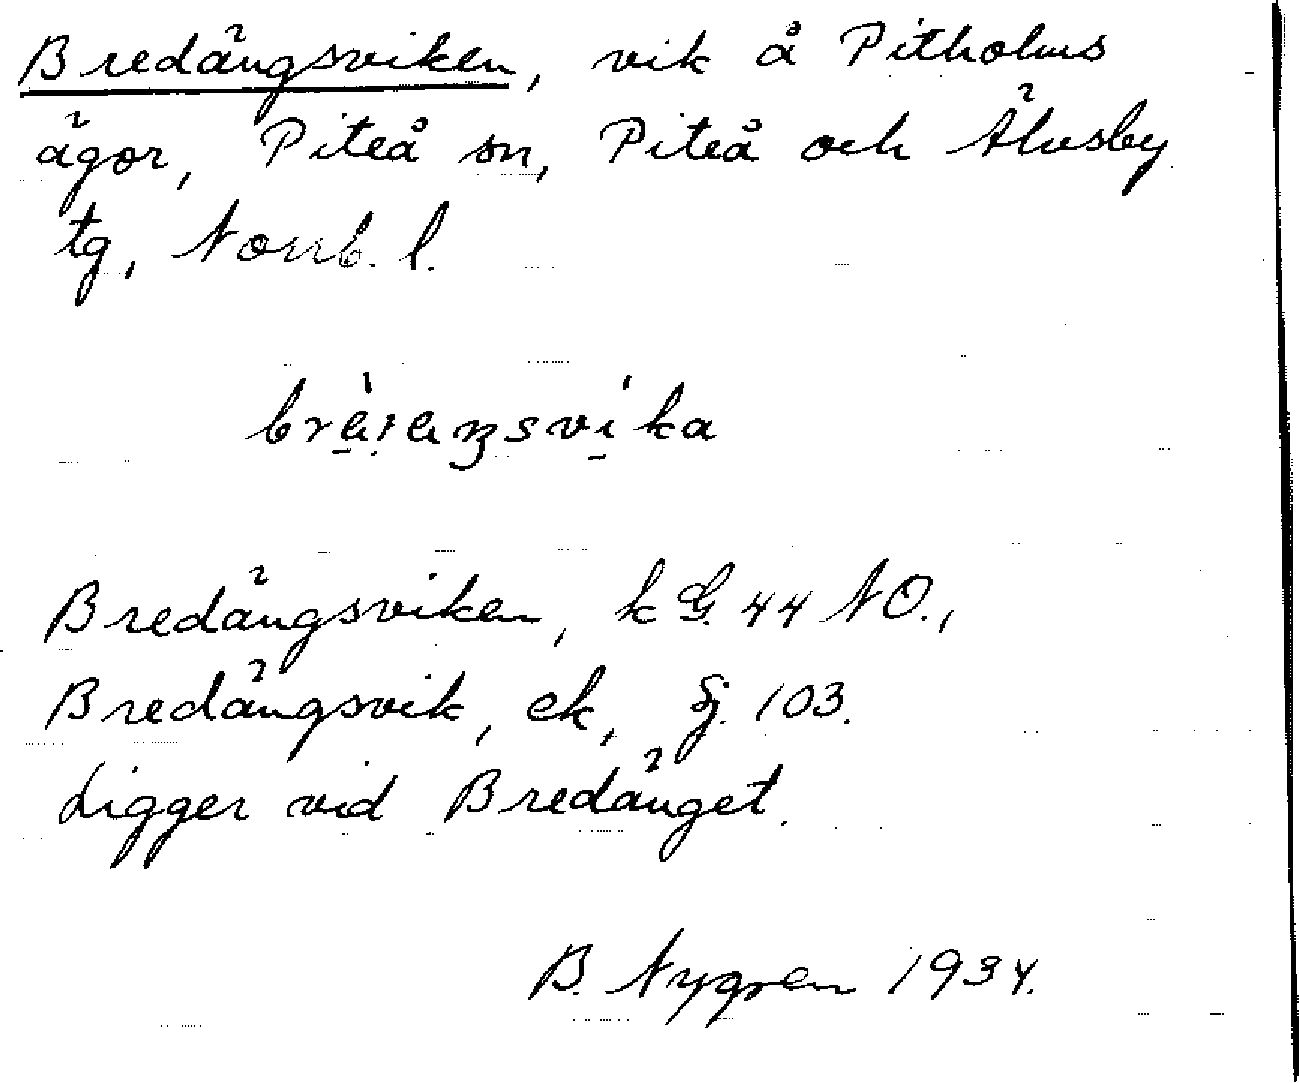 Bredängsviken, vik å Pitholms
ägor, Piteå sn, Piteå och Älvsby
tg, Norrb. l.
Bredängsviken, k G. 44 NO.,
Bredängsvik, ek, fj. 103.
Ligger vid Bredänget.
B. Nygren 1934.